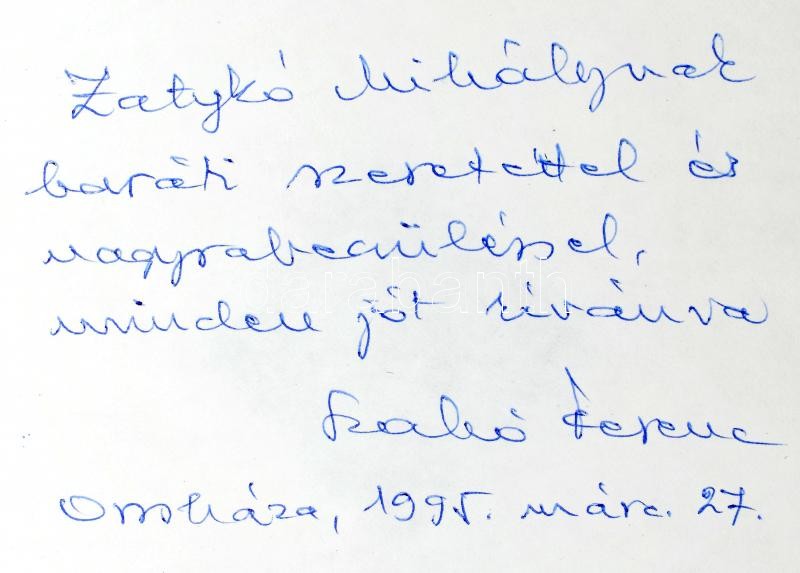 Zatykó Mihálynak
baráti szeretettel és
nagyrabecsüléssel,
minden jót kívánva
Szabó Ferenc
Orosháza, 1995. márc. 27.